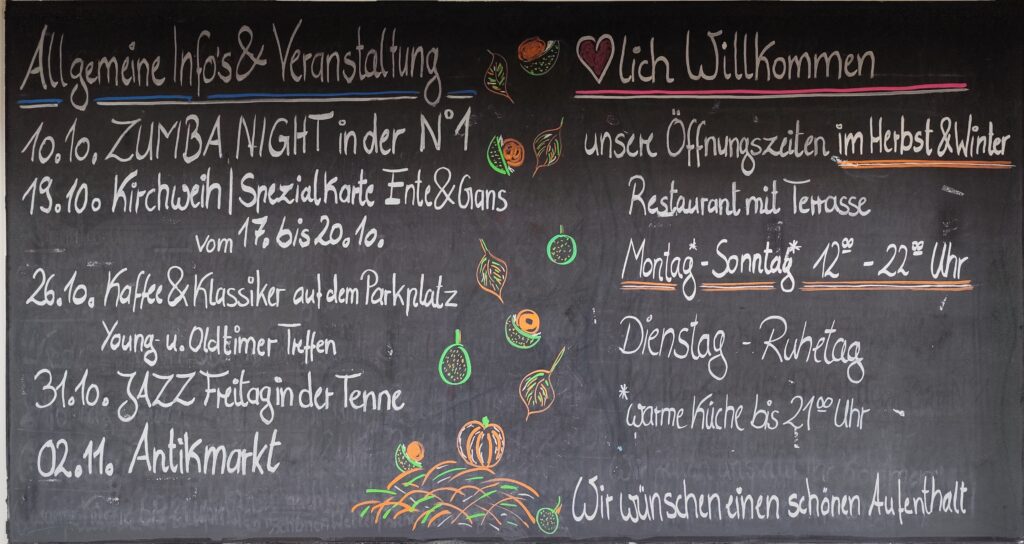 Allgemeine Info's & Veranstaltung
10.10. ZUMBA NIGHT in der N°1
19.10. Kirchweih | Spezialkarte Ente & Gans
vom 17. bis 20.10.
26.10. Kaffee & Klassiker auf dem Parkplatz
Young- u. Oldtimer Treffen
31.10. JAZZ Freitag in der Tenne
02.11. Antikmarkt
lich Willkommen
unsere Öffnungszeiten im Herbst & Winter
Restaurant mit Terrasse
Montag* - Sonntag* 12⁰⁰ - 22⁰⁰ Uhr
Dienstag - Ruhetag
*warme Küche bis 21⁰⁰ Uhr
Wir wünschen einen schönen Aufenthalt